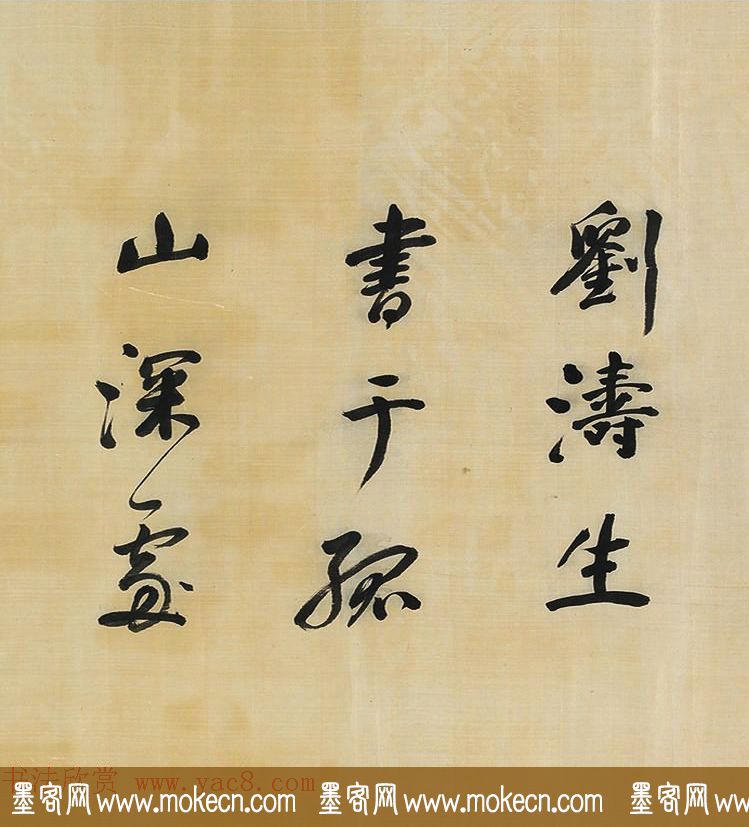 劉濤生
書于孤
山深處
书法欣赏 www.yac8.com
墨客网www.mokecn.com 墨客网www.mokecn.com 墨客网